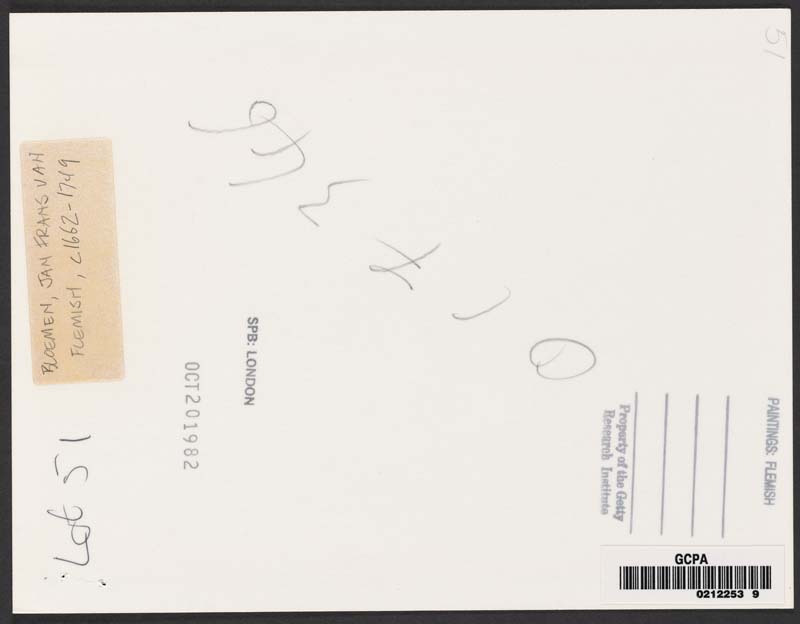 51
BLOEMEN, JAN FRANS VAN
FLEMISH, C1662-1749
SPB: LONDON
OCT 20 1982
Lot 51
PAINTINGS: FLEMISH
Property of the Getty
Research Institute
GCPA
0212253 9